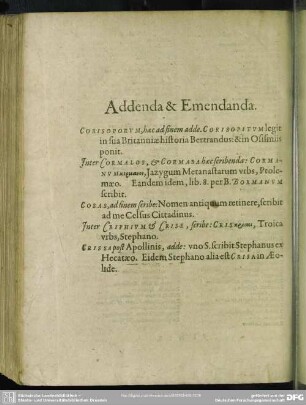 Addenda & Emendanda.
CORISOPORVM, hæc ad finem adde. CORISOPITVM legit
in sua Britanniæ historia Bertrandus: & in Osismiis
ponit.
Inter CORMALOS, & CORMASA hæc scribenda: CORMA-
NVM, Jazygum Metanastarum vrbs, Ptole-
mæo. Eandem idem, lib. 8. per B. BORMANVM
scribit.
COSAS, ad finem scribe: Nomen antiquum retinere, scribit
ad me Celsus Cittadinus.
Inter CRISPIVM & CRISE, scribe: CRIS, Troica
vrbs, Stephano.
CRISSA post Apollinis, adde: vno S. scribit Stephanus ex
Hecatæo. Eidem Stephano alia est CRISA in Æo-
lide.